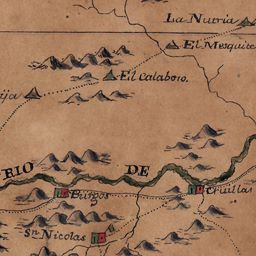 La Nutria
El Mesquite
El Calaboso.
ija
RIO DE
Burgos
Cruillas
Sn Nicolas